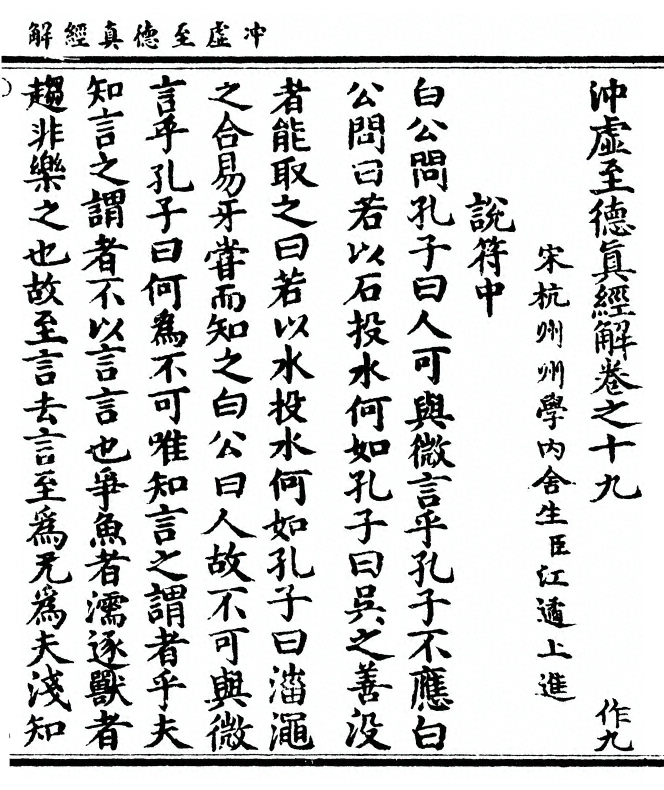 冲虛至德真經解
沖虛至德眞經解卷之十九
作九
宋杭州州學內舍生臣江遹上進
說符中
白公問孔子曰人可與微言乎孔子不應白
公問曰若以石投水何如孔子曰吳之善没
者能取之曰若以水投水何如孔子曰淄澠
之合易牙嘗而知之白公曰人故不可與微
言乎孔子曰何為不可唯知言之謂者乎夫
知言之謂者不以言言也爭魚者濡逐獸者
趨非樂之也故至言去言至為无為夫淺知